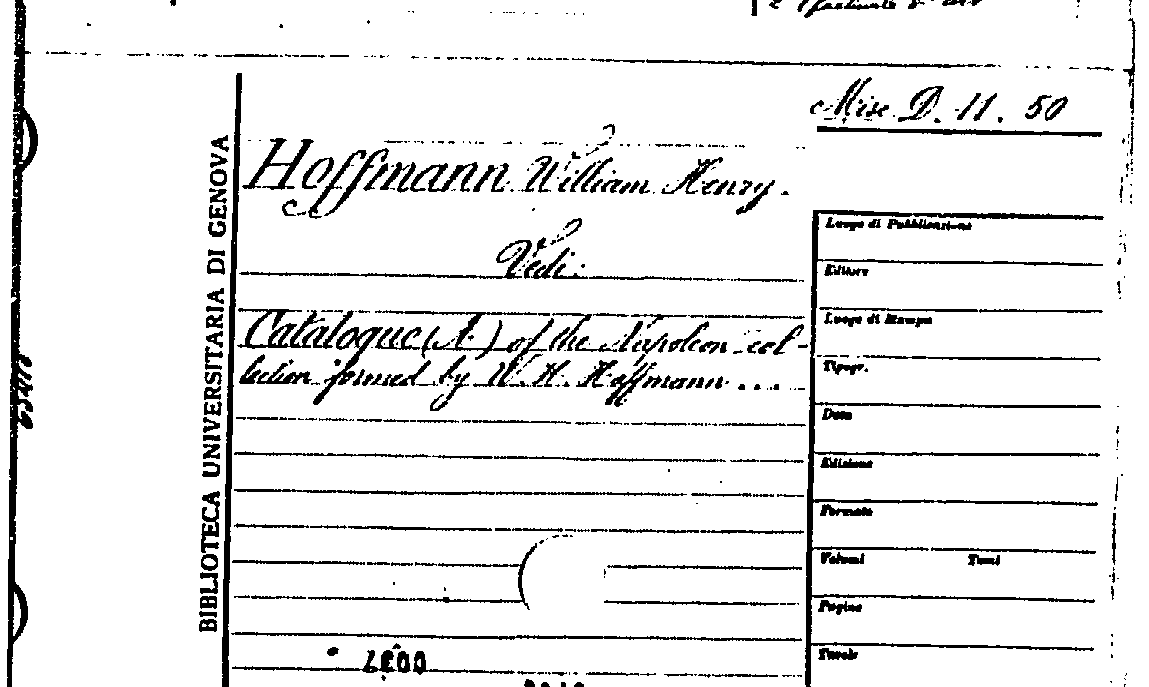 Misc. D. 11. 50
BIBLIOTECA UNIVERSITARIA DI GENOVA
Hoffmann William Henry.
Vedi:
Catalogue (A) of the Napoleon col-
lection formed by W. H. Hoffmann ...
Luogo di Pubblicazione
Editore
Luogo di Stampa
Tipogr.
Data
Edizione
Formato
Volumi Tomi
Pagine
Tavole